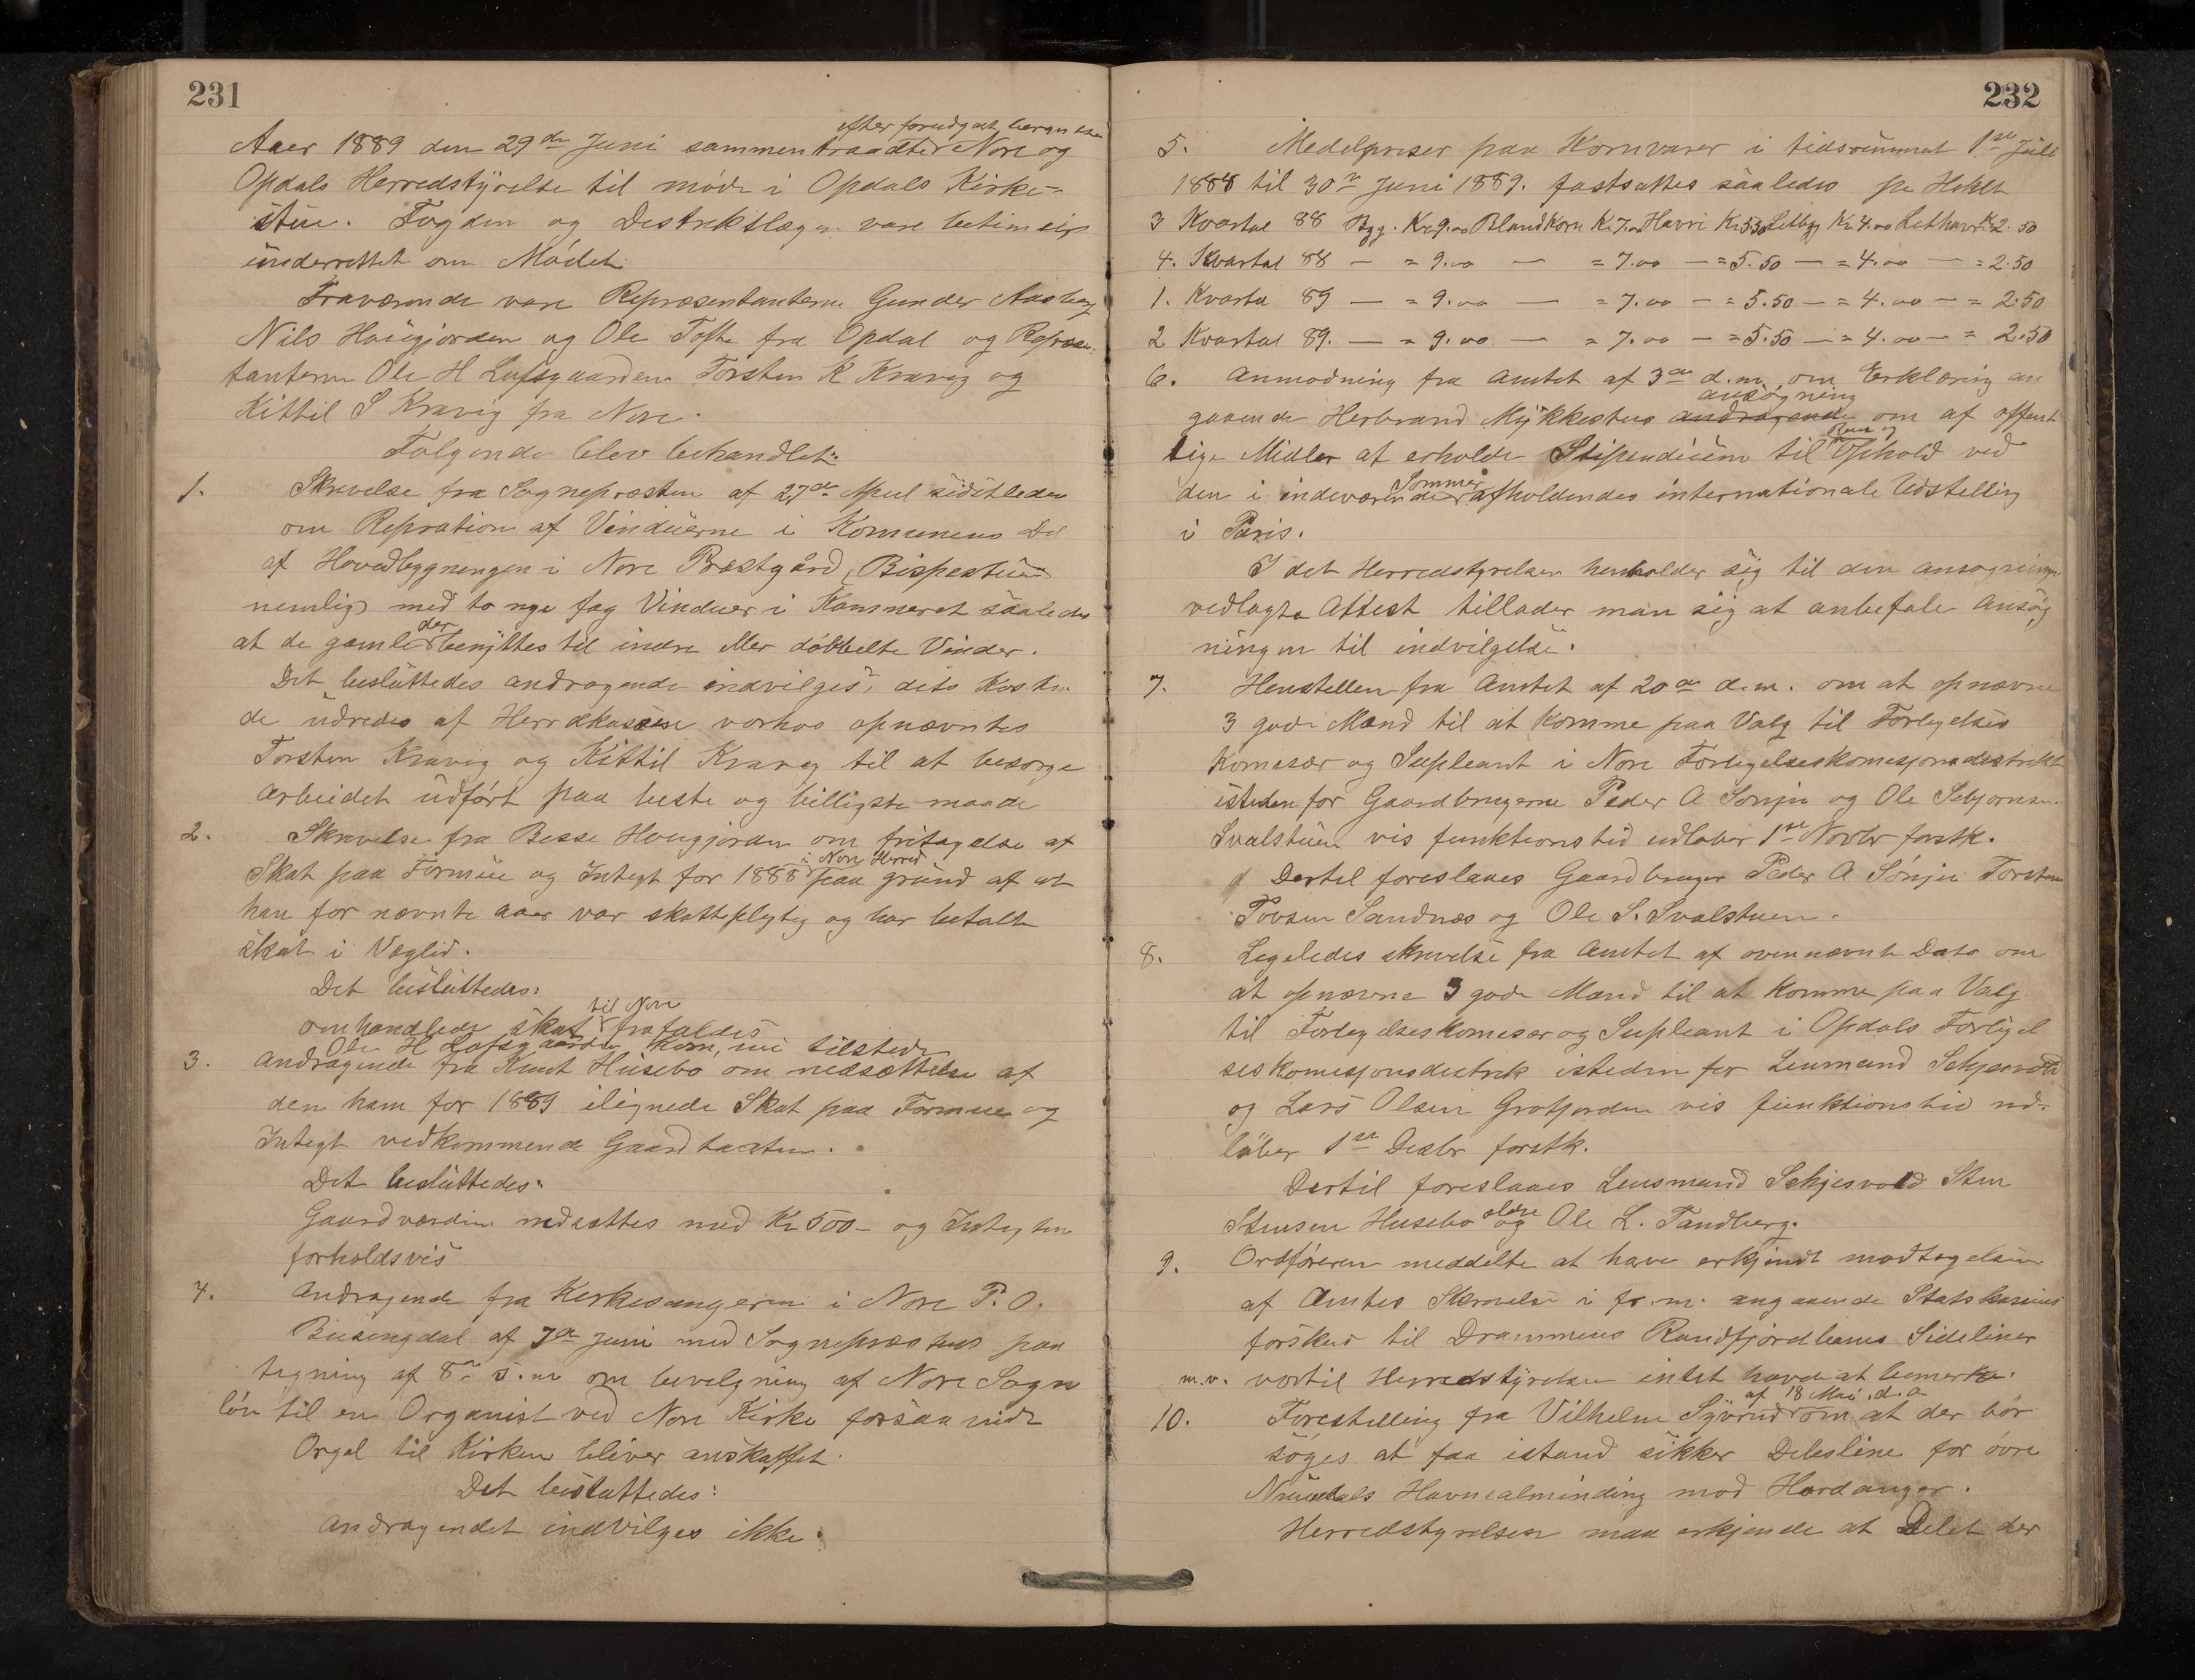 231
efter forudgaat
Aaer 1889 den 29de Juni sammentraadte Nore og
Opdals Herredstyrelse til møde i Opdals Kirke=
stue. Fogden og Destriktslægen vare betimelig
underrettet om Mødet.
Fraværende vare Repræsentanterne Gunder Aasberg
Nils Hougjorden og Ole Tofte fra Opdal og Repræsen-
tanterne Ole H Lofsgaarden Torsten K Kravig og
Kittil S Kravig fra Nore.
Følgende blev behandlet:
1. Skrivelse fra Sognepræsten af 27de April sidstleden
om Repration af Vinduerne i Komunens Del
af Hovedbygningen i Nore Præstgård, Bispestuen
nemlig med to nye fag Vinduer i Kammeret saaledes
der
at de gamle benyttes til indre eller dobbelte Vinder.
Det besluttedes andragende indvilges, dets Kosten
de udredes af Herredkassen vorhos opnævntes
Torsten Kravig og Kittil Kravig til at besørge
arbeidet udført paa beste og billigste maade
2. Skrivelse fra Besse Hougjorden om fritagelse af
i Nore Herred
Skat paa Formue og Indtegt for 1888 paa grund af at
han for nævnte aaer var skatteplegtig og har betalt
skat i Veglid.
Det besluttedes:
til Nore
omhandlede skat frafaldes
Ole H Lofsgaarden kom nu tilstede
3. andragende fra Knut Husebø om nedsættelse af
den ham for 1889 ilignede Skat paa Formue og
Indtegt vedkommende Gaardtaxten.
Det besluttedes:
Gaardværdien nedsættes med Kr 500- og Indtegten
forholdsvis
4. Andragende fra Kirkesangeren i Nore P. O.
Busengdal af 7de Juni med Sognepræstens paa
tegning af 8de s.m om bevelgning af Nore Sogn
løn til en Organist ved Nore Kirke forsaavidt
Orgel til Kirken bliver anskaffet.
Det besluttedes:
Andragendet indvilges ikke.
232
5. Medelpriser paa Kornvarer i tidsrummet 1ste Juli
1888 til 30te Juni 1889. fastsattes saaledes pr Hektl
3 Kvartal 88 Byg. Kr 9.00 Blandkorn Kr 7.00 Havre Kr 5.50 Letbyg Kr 4.00 Lethavre Kr 2.50
4. Kvartal 88 — = 9.00 — = 7.00 — = 5.50 — = 4.00 — = 2.50
1. Kvartal 89 — = 9.00 — = 7.00 — = 5.50 — = 4.00 — = 2.50
2 Kvartal 89. — = 9.00 — = 7.00 — = 5.50 — = 4.00 — = 2.50
6. Anmodning fra Amtet af 3de d.m. om Erklæring an
ansøgning
gaaende Herbrand Mykkestus andragende om af offent
Reise og
lige Midler at erholde Stipendium til Ophold ved
Sommer
den i indeværende afholdendes internationale Udstelling
i Paris.
I det Herredstyrelsen henholder sig til den ansøgningen
vedlagte Attest tillader man sig at anbefale Ansøg
ningen til indvilgelse.
7. Henstellen fra Amtet af 20de d.m. om at opnævne
3 gode Mænd til at komme paa Valg til Forligelses
komesær og Supleant i Nore Forligelseskomesjonsdestrikt
istedenfor Gaardbrugerne Peder A Sønju og Ole Sebjørnsen
Svalstuen vis funktionstid udløber 1ste Novbr førstk.
Dertil foreslaaes Gaardbruger Peder A Sønju Torsten
Tovsen Sandnæs og Ole S. Svalstuen.
8. Legeledes skrivelse fra Amtet af ovennævnte Dato om
at opnævne 3 gode Mænd til at komme paa Valg
til Forligelseskomesær og Supleant i Opdals Forligel
seskomesjonsdestrik isteden for Lensmand Schjesvold
og Lars Olsen Grotjorden vis funktionstid ud=
løber 1ste Decbr førstk.
Dertil foreslaaes Lensmand Schjesvold Sten
eldre
Stensen Husebø og Ole L. Tandberg.
9. Ordføreren meddelte at have erkjendt modtagelsen
af Amtes Skrivelse i fr.m. angaaende Statskassens
forskud til Drammens Randfjordbanes Sideliner
m.v. vortil Herredstyrelsen intet havde at bemerke.
af 18 Mai d.a
10. Forestelling fra Vilhelm Syvrud om at der bør
søges at faa istand sikker Deleslinie for øvre
Numedals Havnealminding mod Hardanger.
Herredstyrelsen maa erkjende at Delet der